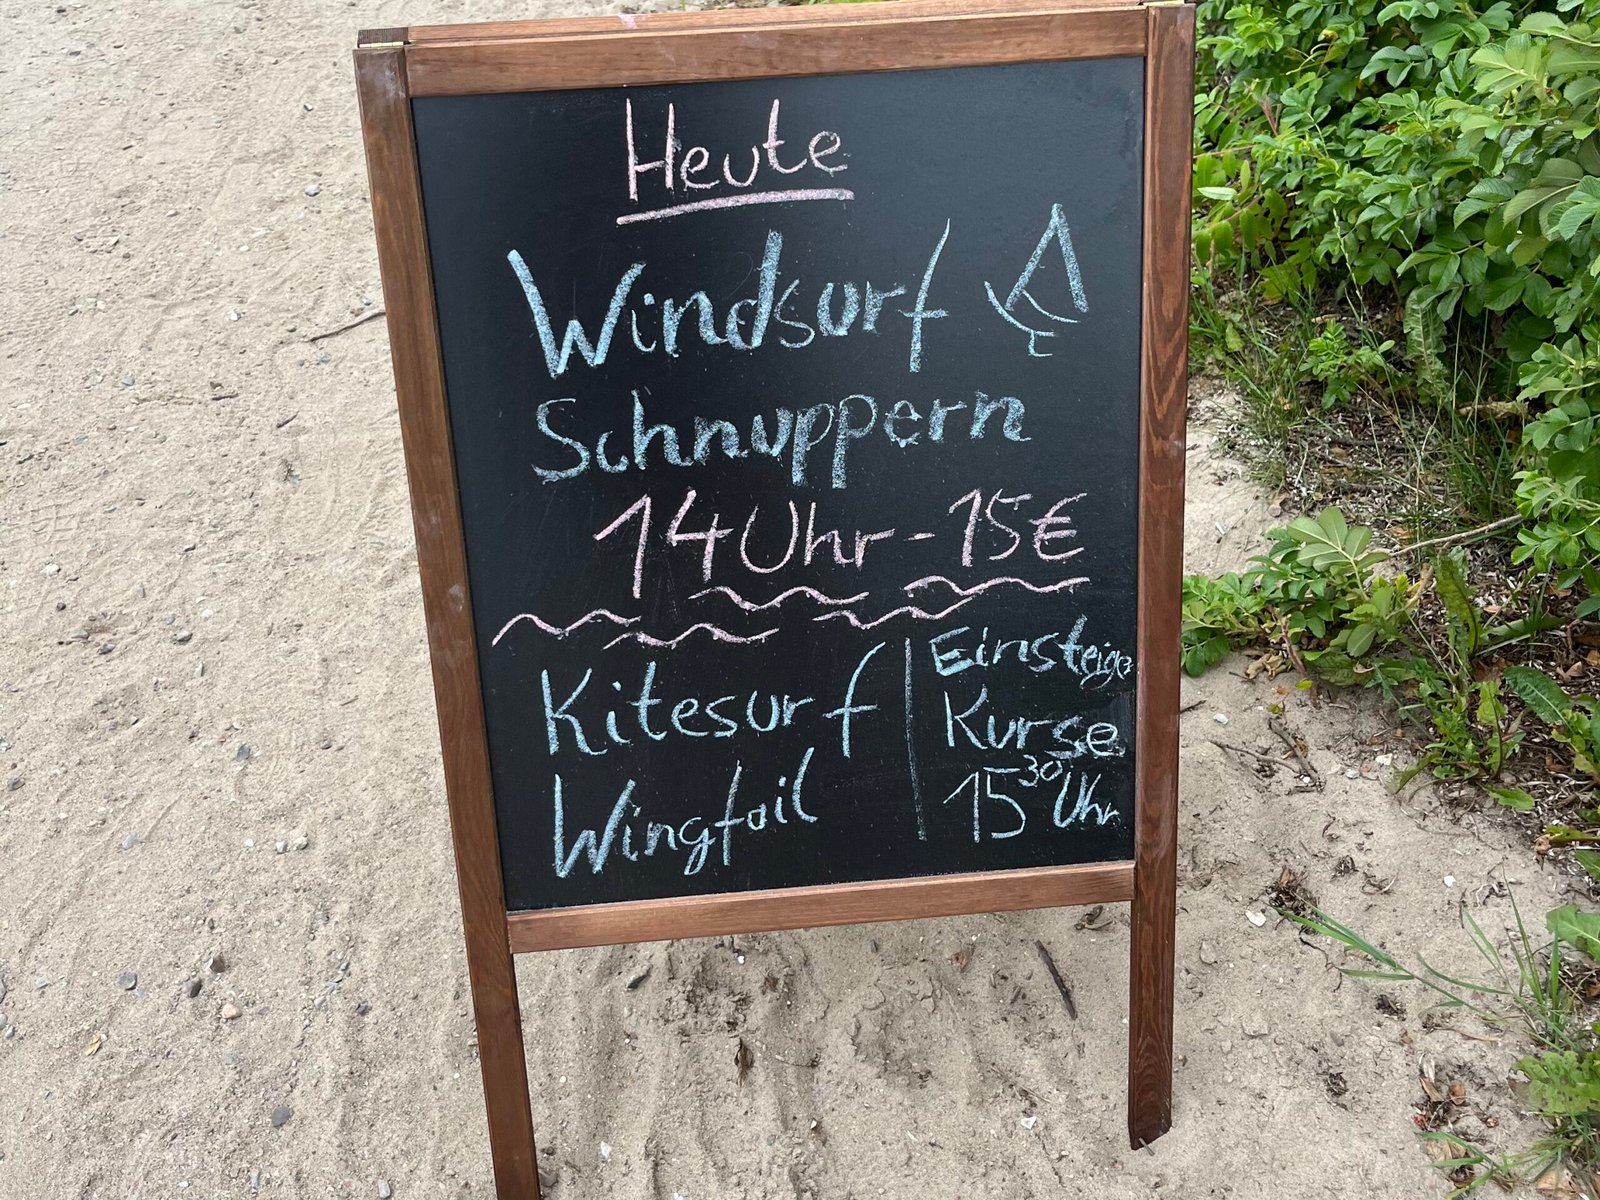 Heute
Windsurf
Schnuppern
14 Uhr - 15€
Kitesurf
Wingfoil
Einsteiger
Kurse
15 30 Uhr